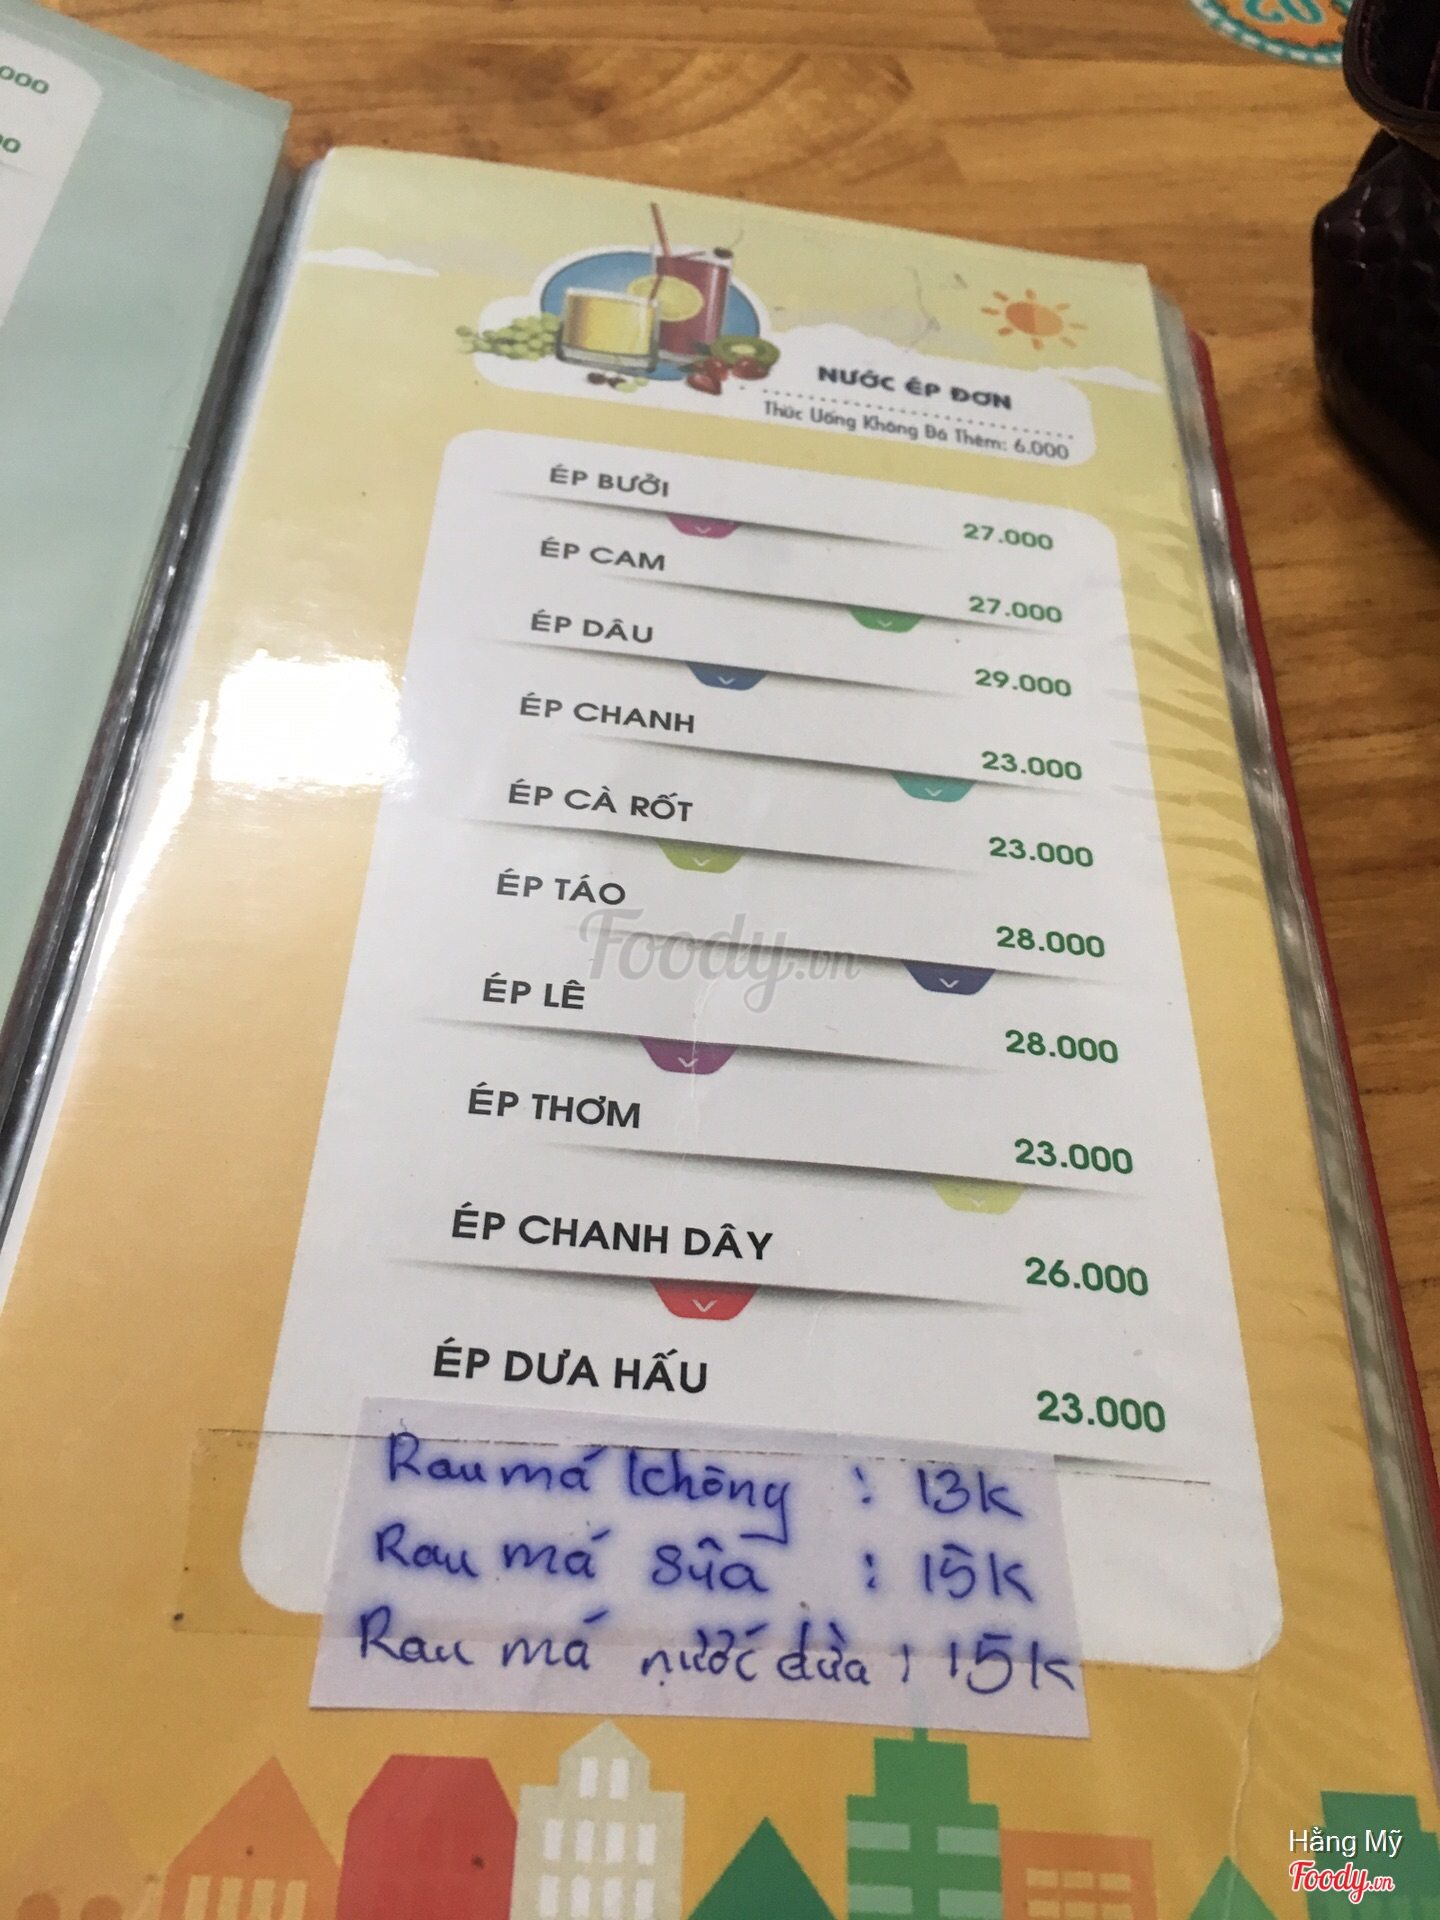 000
NƯỚC ÉP ĐƠN
Thức Uống Không Đá Thêm: 6.000
ÉP BƯỞI 27.000
ÉP CAM 27.000
ÉP DÂU 29.000
ÉP CHANH 23.000
ÉP CÀ RỐT 23.000
ÉP TÁO 28.000
Foody.vn
ÉP LÊ 28.000
ÉP THƠM 23.000
ÉP CHANH DÂY 26.000
ÉP DƯA HẤU 23.000
Rau má không : 13k
Rau má sữa : 15k
Rau má nước dừa : 15k
Hằng Mỹ
Foody.vn